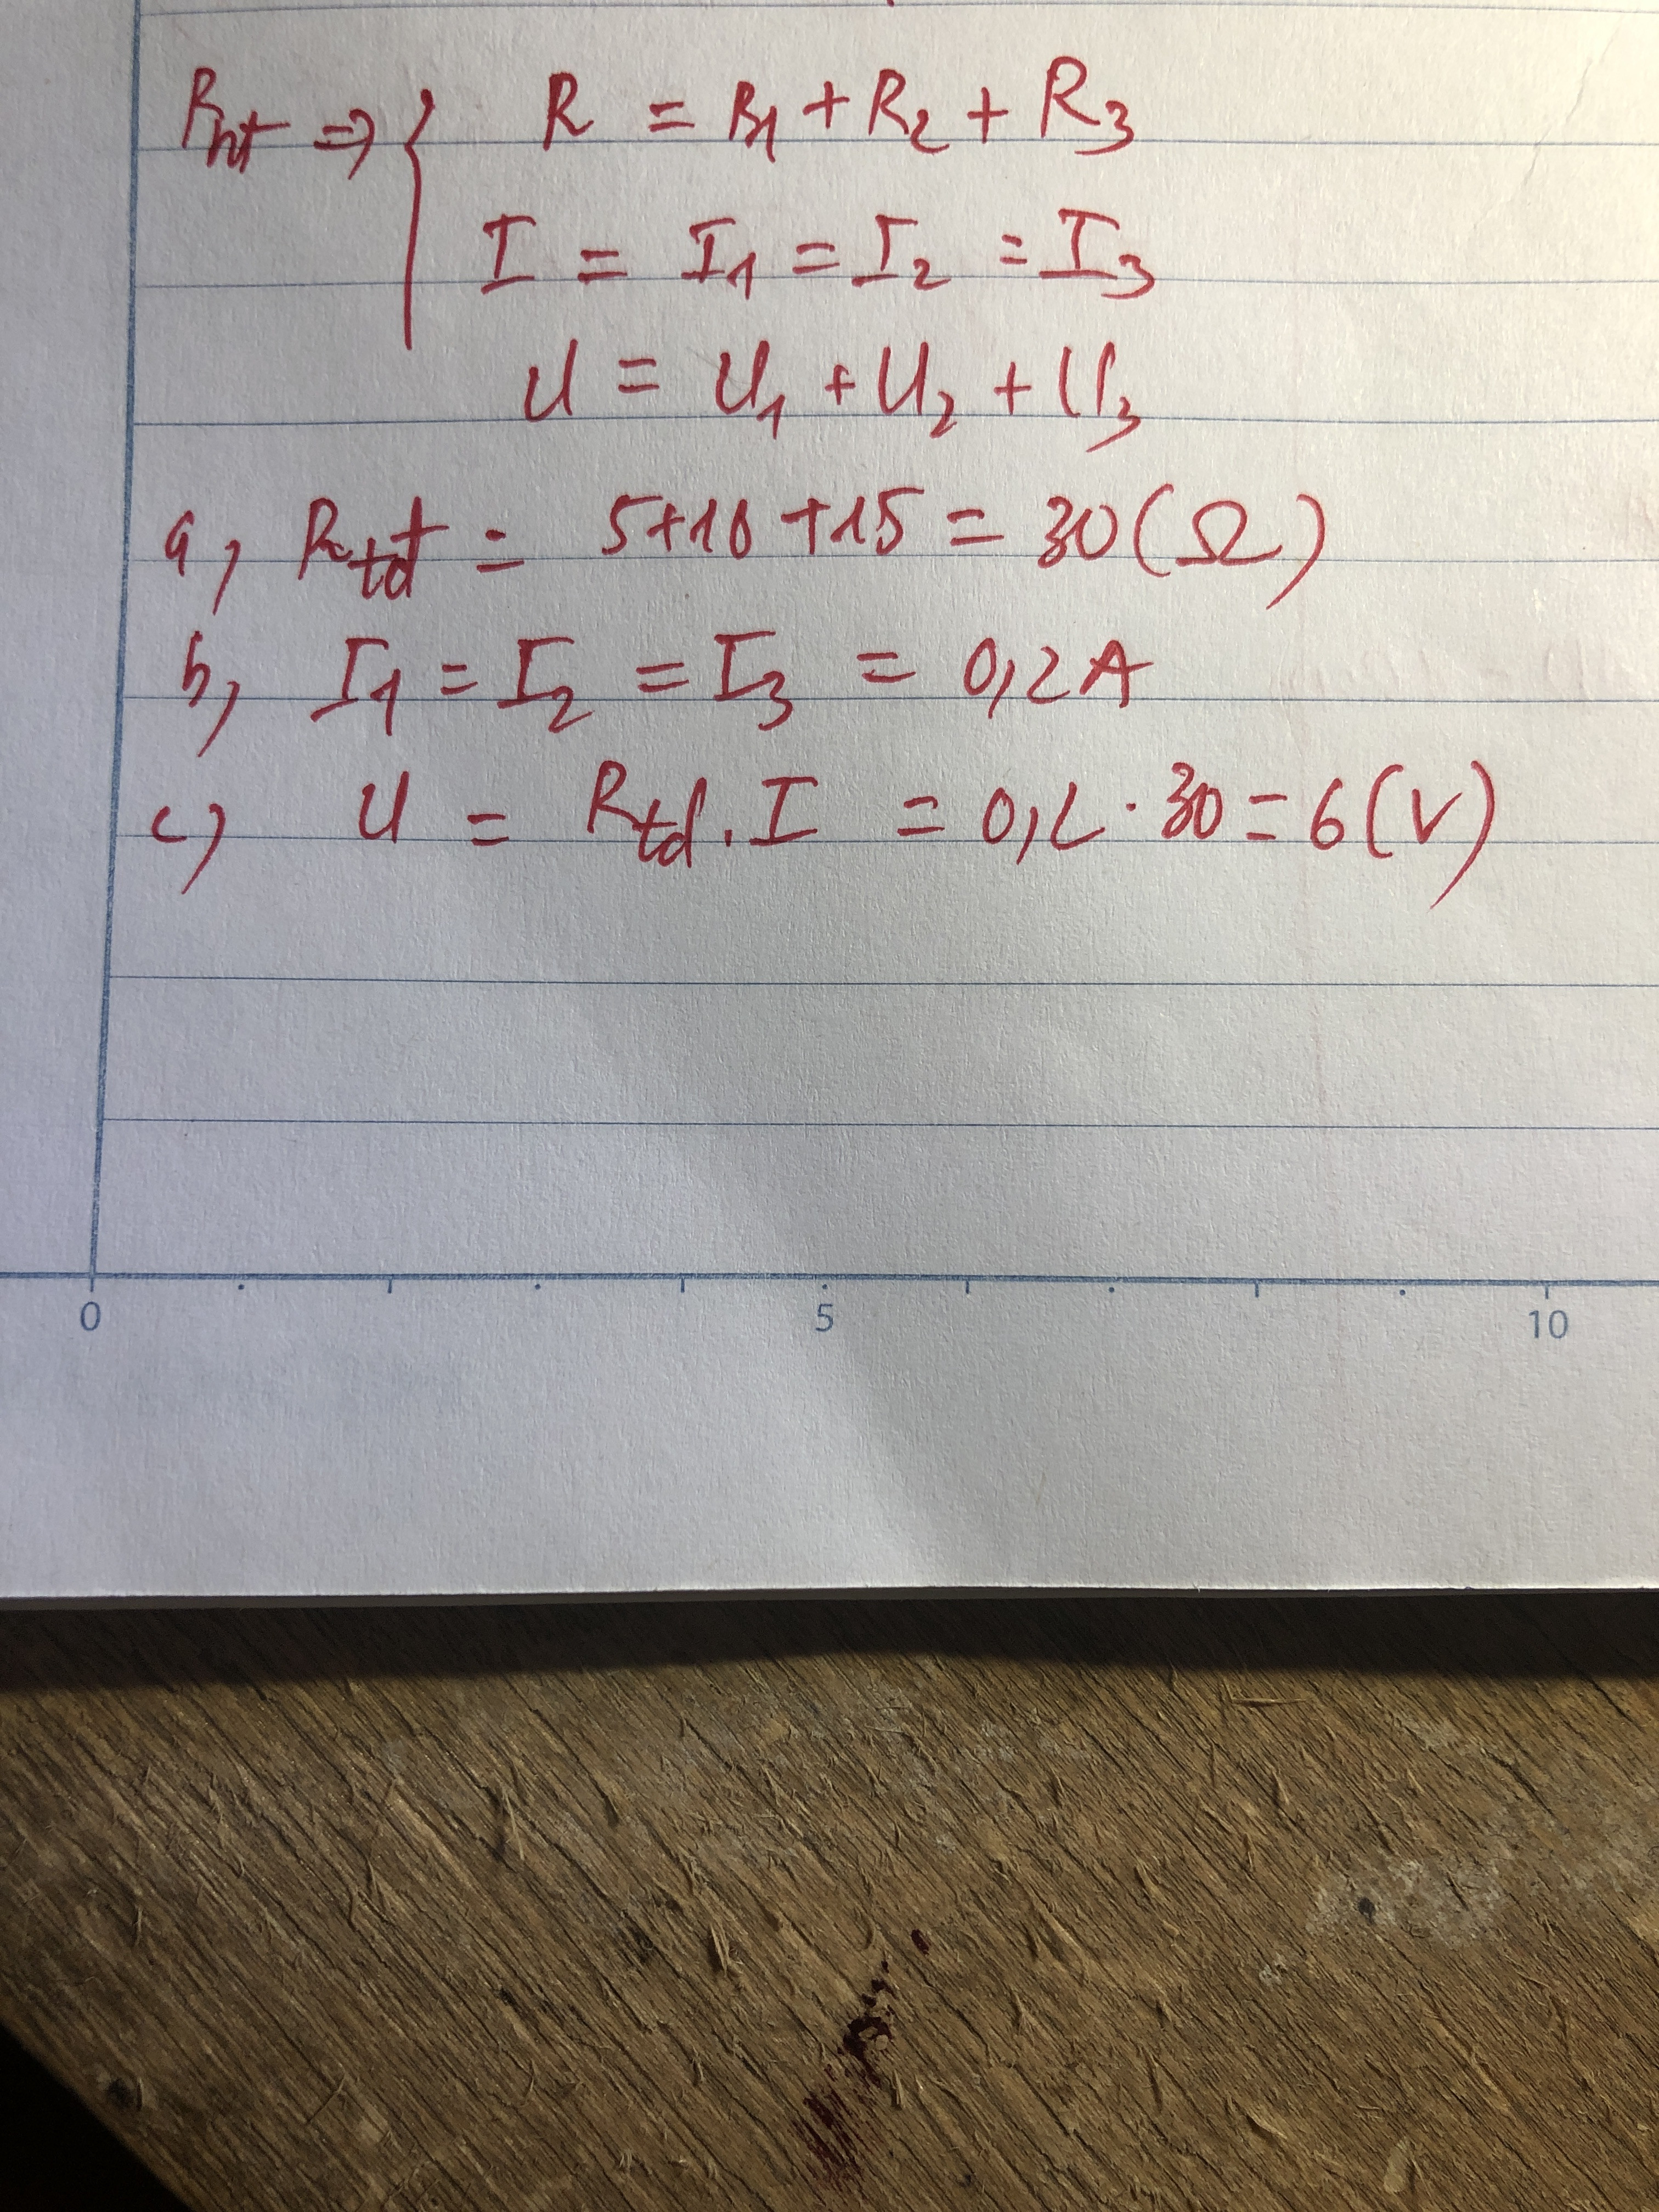 Rnt => { R = R1 + R2 + R3
I = I1 = I2 = I3
U = U1 + U2 + U3
a, Rtđ = 5+10+15 = 30(Ω)
b, I1 = I2 = I3 = 0,2A
c) U = Rtd . I = 0,2 . 30 = 6(V)
0 5 10